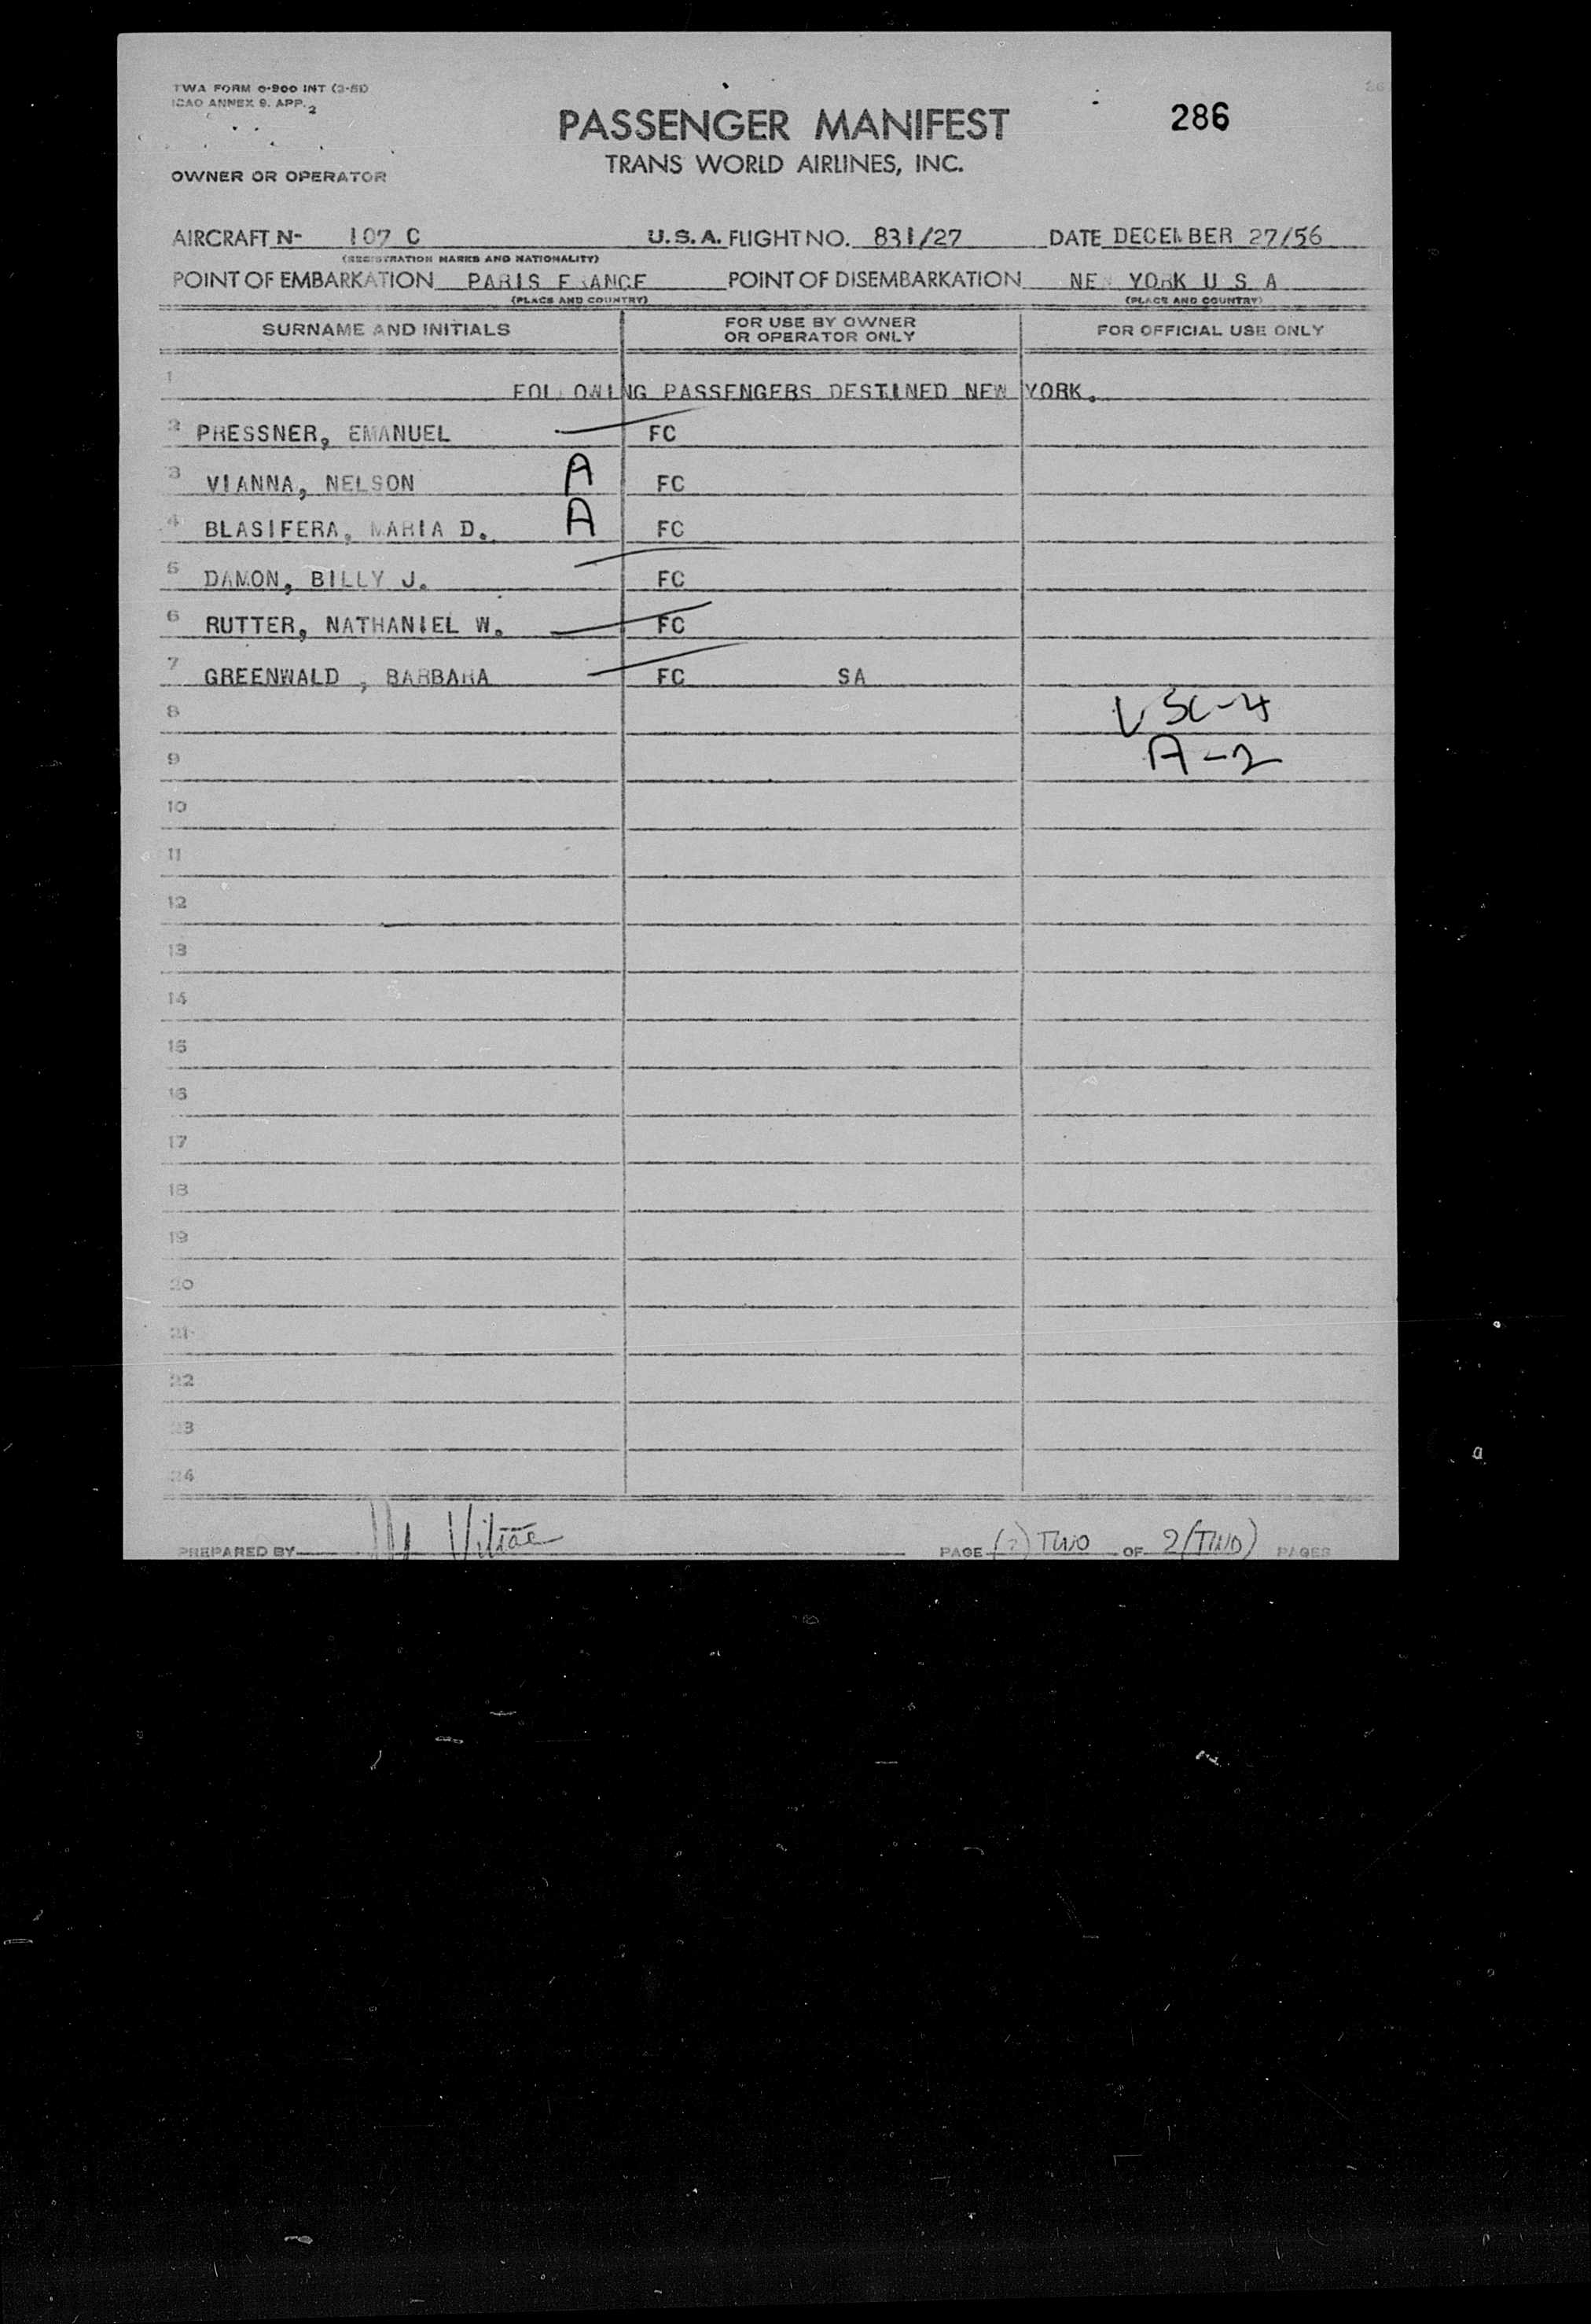 TWA FORM 0-900 INT (3-51)
ICAO ANNEX 9. APP. 2
PASSENGER MANIFEST
286
TRANS WORLD AIRLINES, INC.
OWNER OR OPERATOR
AIRCRAFT N- 107 C U.S.A. FLIGHT NO. 831/27 DATE DECEMBER 27/56
(REGISTRATION MARKS AND NATIONALITY)
POINT OF EMBARKATION PARIS FRANCE POINT OF DISEMBARKATION NEW YORK U S A
(PLACE AND COUNTRY) (PLACE AND COUNTRY)
SURNAME AND INITIALS FOR USE BY OWNER OR OPERATOR ONLY FOR OFFICIAL USE ONLY
1 FOLLOWING PASSENGERS DESTINED NEW YORK.
2 PRESSNER, EMANUEL FC
3 VIANNA, NELSON A FC
4 BLASIFERA, MARIA D. A FC
5 DAMON, BILLY J. FC
6 RUTTER, NATHANIEL W. FC
7 GREENWALD , BARBARA FC SA
8 USC-4
9 A-2
10
11
12
13
14
15
16
17
18
19
20
21
22
23
24
PREPARED BY PAGE (2) TWO OF 2(TWO) PAGES